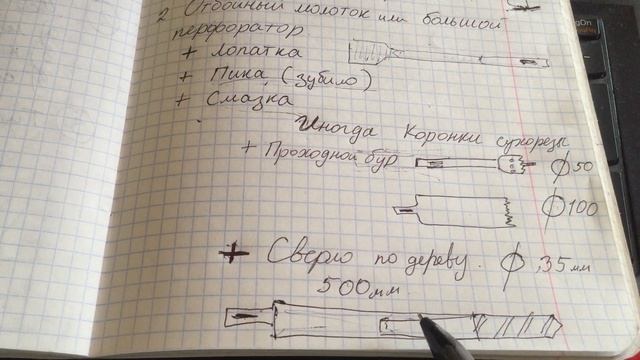 2 Отбойный молоток или большой
перфоратор
+ Лопатка
+ Пика (зубило)
+ Смазка
Иногда Коронки сухорезы
+ Проходной бур ϕ 50
ϕ 100
+ Сверло по дереву. ϕ 35 мм
500 мм